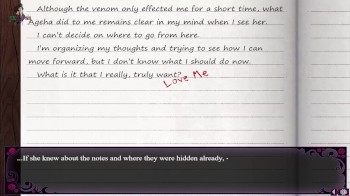 Although the venom only effected me for a short time, what
Ageha did to me remains clear in my mind when I see her.
I can't decide on where to go from here.
I'm organizing my thoughts and trying to see how I can
move forward, but I don't know what I should do now.
What is it that I really, truly want?
Love Me
...If she knew about the notes and where they were hidden already, -